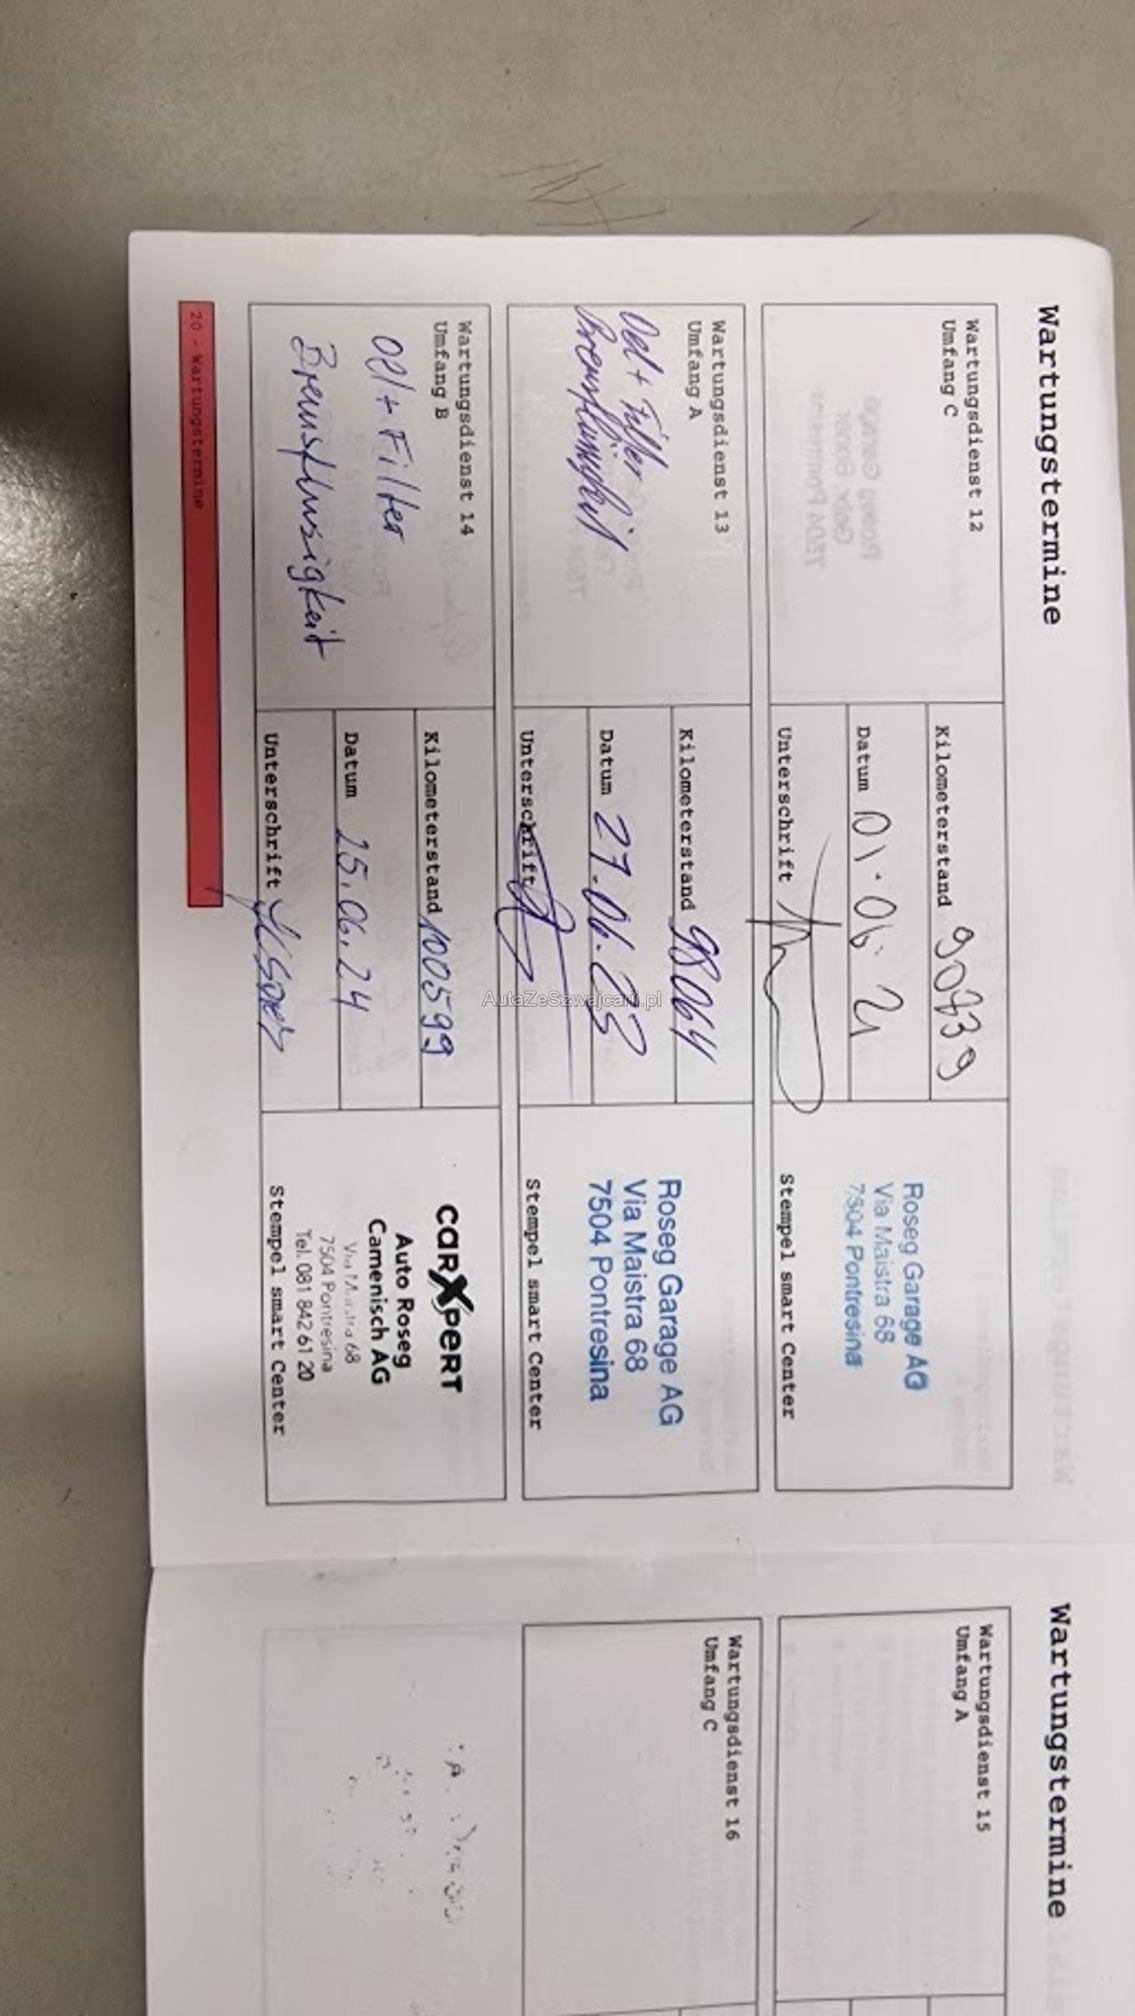 Wartungstermine
Wartungsdienst 12
Umfang C
Kilometerstand 90739
Datum 01.06.21
Unterschrift
Roseg Garage AG
Via Maistra 68
7504 Pontresina
Stempel smart Center
Wartungsdienst 13
Umfang A
Oel + Filter
Bremsflüssigkeit
Kilometerstand 98064
Datum 27.06.23
Unterschrift
Roseg Garage AG
Via Maistra 68
7504 Pontresina
Stempel smart Center
Wartungsdienst 14
Umfang B
Oel + Filter
Bremsflüssigkeit
Kilometerstand 100599
Datum 25.06.24
Unterschrift
carXpert
Auto Roseg
Camenisch AG
Via Maistra 68
7504 Pontresina
Tel. 081 842 61 20
Stempel smart Center
20 - Wartungstermine
Wartungstermine
Wartungsdienst 15
Umfang A
Wartungsdienst 16
Umfang C
AutaZeSzwajcarii.pl